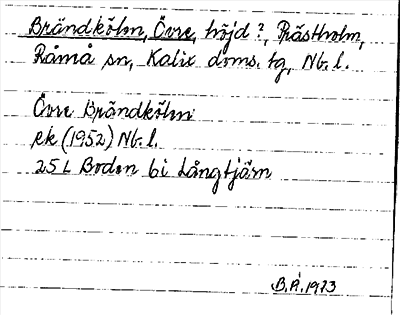 Brändkölen, Övre, höjd ?, Prästholm,
Råneå sn, Kalix doms. tg, Nb. l.
Övre Brändkölen
ek (1952) Nb. l.
25 L Boden 6 i Långtjärn
B.P. 1973